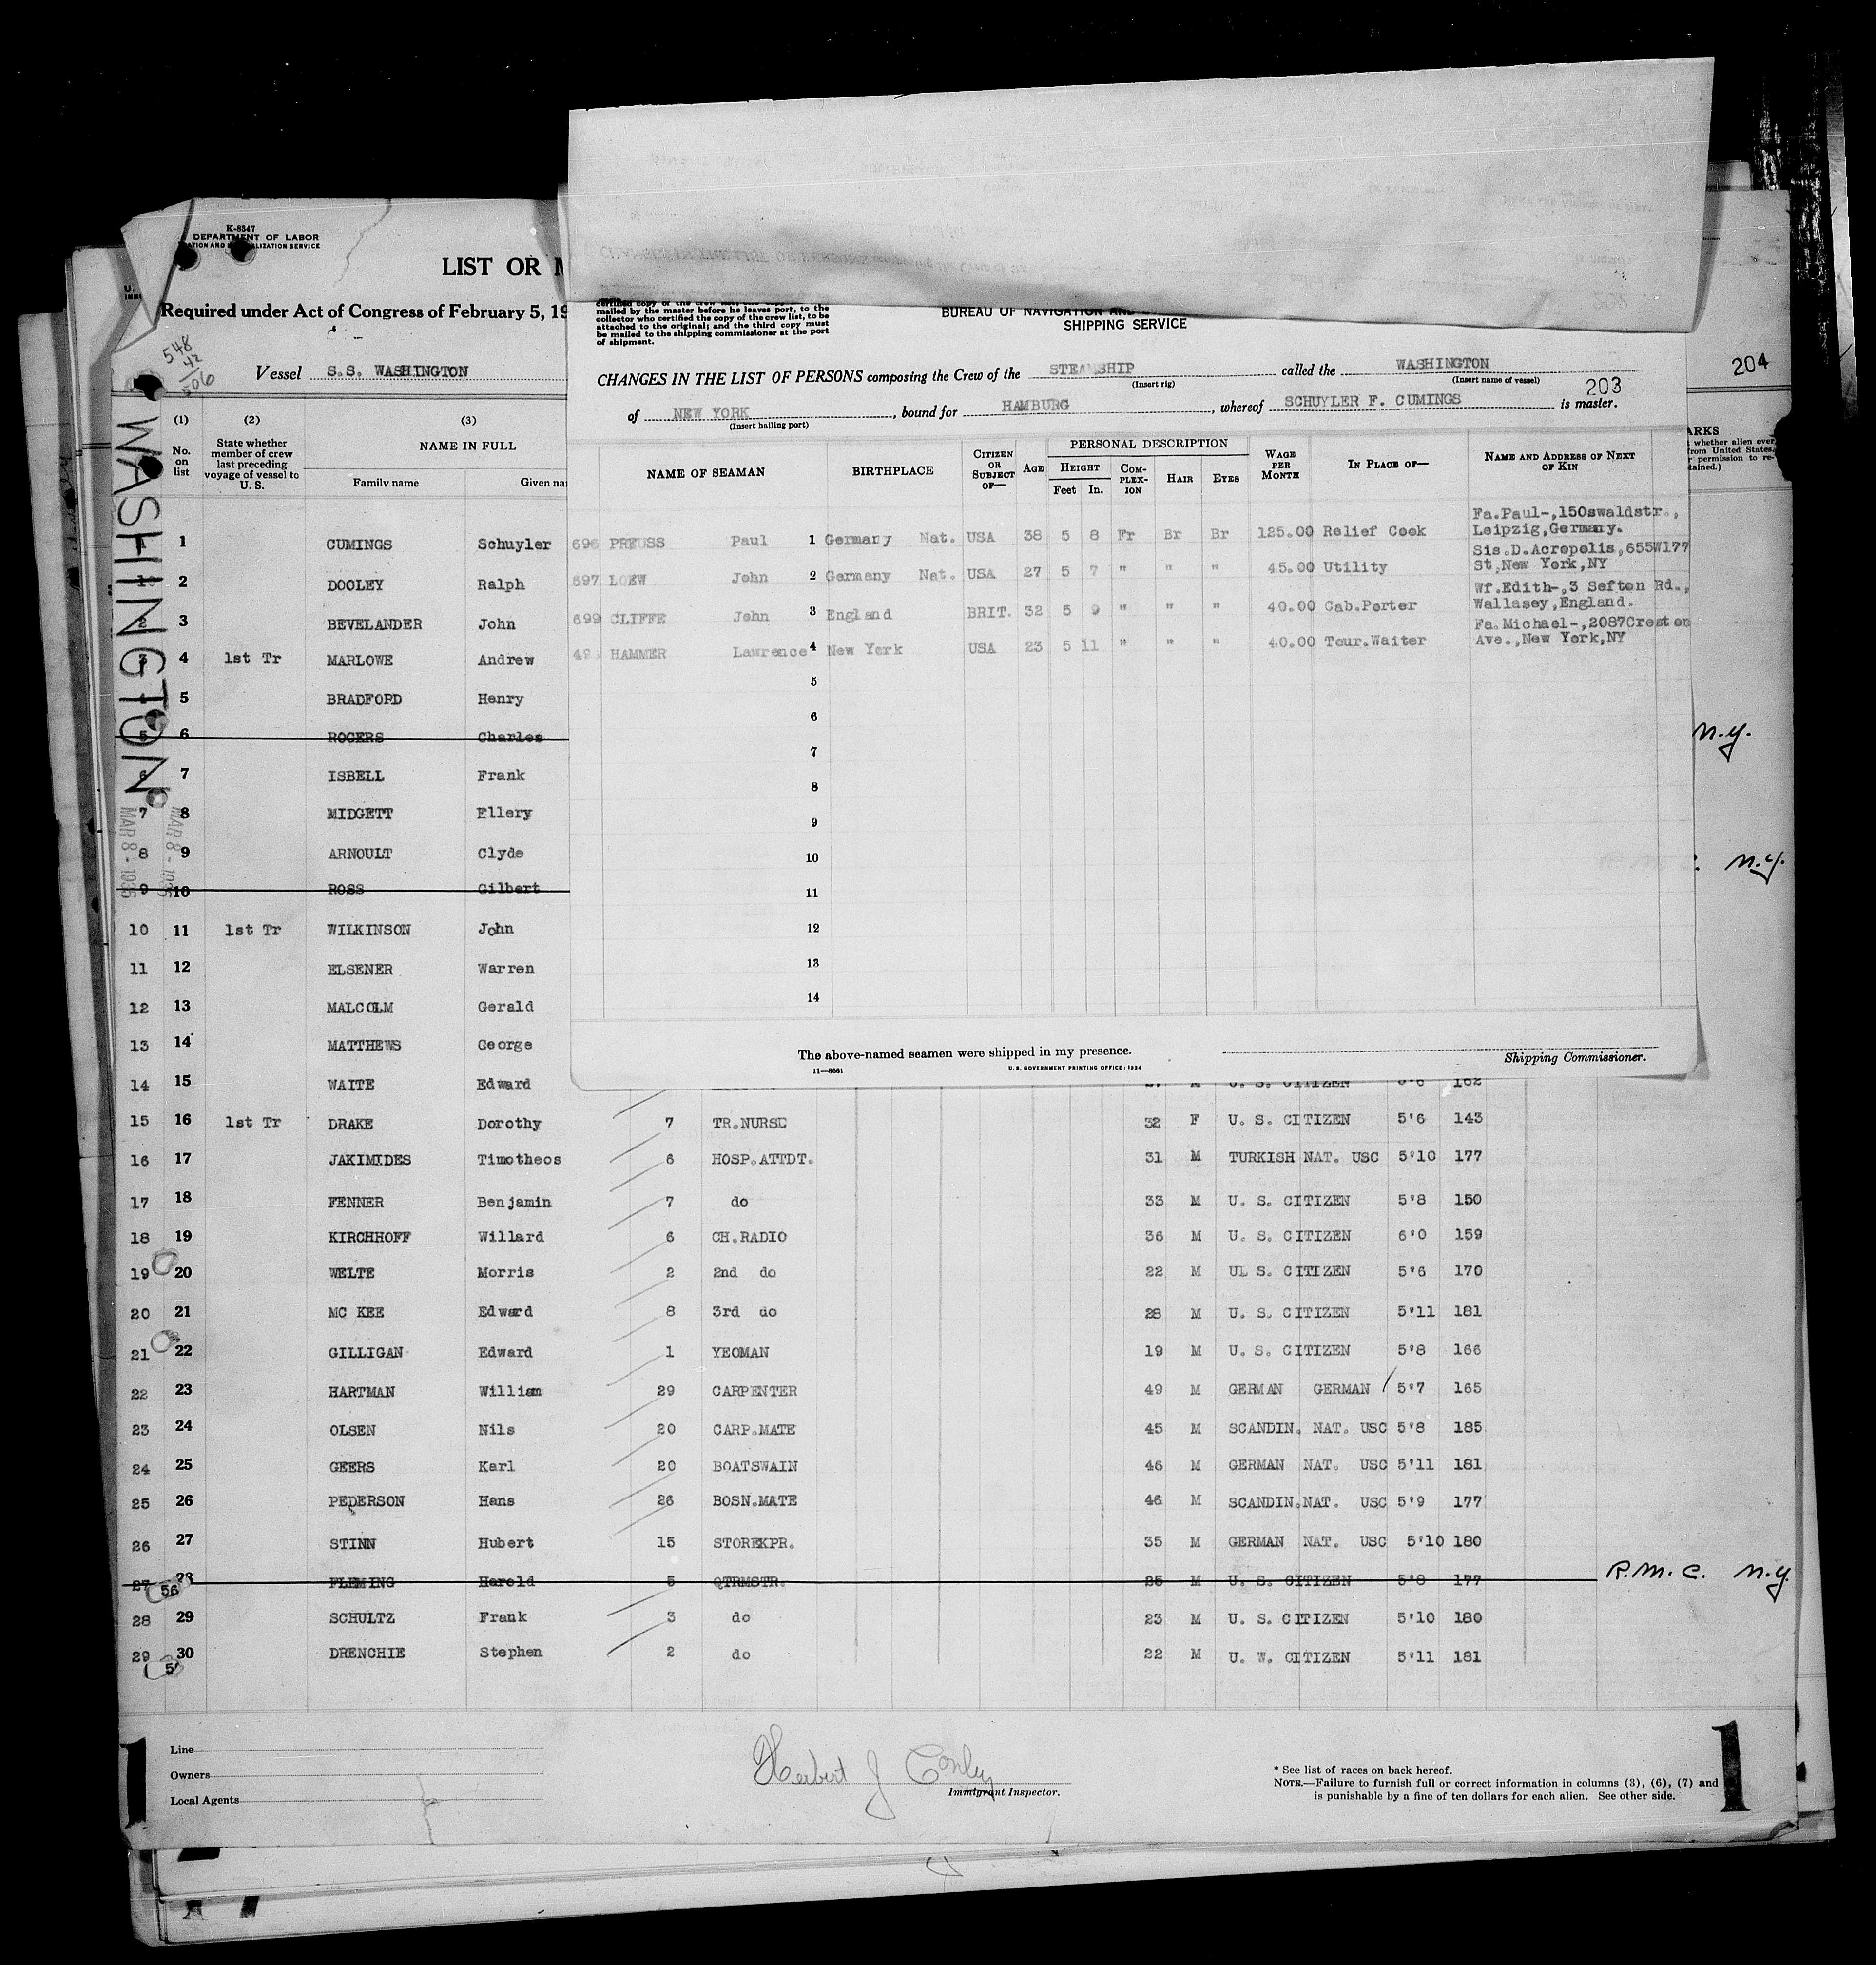 K-8347
DEPARTMENT OF LABOR
LIST OR
Required under Act of Congress of February 5, 19
548
42
506
Vessel S.S. WASHINGTON
204
WASHINGTON
MAR 8 - 1935
MAR 8 - 1935
(1) (2) (3)
No. on list
State whether member of crew last preceding voyage of vessel to U. S.
NAME IN FULL
Family name Given
certified copy of the crew
mailed by the master before he leaves port, to the
collector who certified the copy of the crew list, to be
attached to the original; and the third copy must
be mailed to the shipping commissioner at the port
of shipment.
BUREAU OF NAVIGATION AND
SHIPPING SERVICE
CHANGES IN THE LIST OF PERSONS composing the Crew of the STEAMSHIP called the WASHINGTON
(Insert rig) (Insert name of vessel)
203
of NEW YORK, bound for HAMBURG, whereof SCHUYLER F. CUMINGS is master.
(Insert hailing port)
NAME OF SEAMAN BIRTHPLACE CITIZEN OR SUBJECT OF— AGE PERSONAL DESCRIPTION WAGE PER MONTH IN PLACE OF— NAME AND ADDRESS OF NEXT OF KIN
HEIGHT COMPLEXION HAIR EYES
Feet In.
696 PREUSS Paul 1 Germany Nat. USA 38 5 8 Fr Br Br 125.00 Relief Cook Fa.Paul-,15Oswaldstr., Leipzig,Germany.
697 LOEW John 2 Germany Nat. USA 27 5 7 " " " 45.00 Utility Sis.D.Acropolis,655W177 St,New York,NY
699 CLIFFE John 3 England BRIT. 32 5 9 " " " 40.00 Cab.Porter Wf.Edith-,3 Sefton Rd., Wallasey,England.
49 HAMMER Lawrence 4 New York USA 23 5 11 " " " 40.00 Tour.Waiter Fa.Michael-,2087Creston Ave.,New York,NY
5
6
7
8
9
10
11
12
13
14
The above-named seamen were shipped in my presence.
Shipping Commissioner.
11—8661 U. S. GOVERNMENT PRINTING OFFICE: 1934
ARKS
whether alien ever
from United States,
permission to re-
tained.)
1 CUMINGS Schuyler
2 DOOLEY Ralph
2 3 BEVELANDER John
3 4 1st Tr MARLOWE Andrew
5 BRADFORD Henry
5 6 ROGERS Charles N.Y.
6 7 ISBELL Frank
7 8 MIDGETT Ellery
8 9 ARNOULT Clyde
9 10 ROSS Gilbert N.Y.
10 11 1st Tr WILKINSON John
11 12 ELSENER Warren
12 13 MALCOLM Gerald
13 14 MATTHEWS George
14 15 WAITE Edward M U. S. CITIZEN 5'6 162
15 16 1st Tr DRAKE Dorothy 7 TR.NURSE 32 F U. S. CITIZEN 5'6 143
16 17 JAKIMIDES Timotheos 6 HOSP.ATTDT. 31 M TURKISH NAT. USC 5'10 177
17 18 FENNER Benjamin 7 do 33 M U. S. CITIZEN 5'8 150
18 19 KIRCHHOFF Willard 6 CH.RADIO 36 M U. S. CITIZEN 6'0 159
19 20 WELTE Morris 2 2nd do 22 M UL S. CITIZEN 5'6 170
20 21 MC KEE Edward 8 3rd do 28 M U. S. CITIZEN 5'11 181
21 22 GILLIGAN Edward 1 YEOMAN 19 M U. S. CITIZEN 5'8 166
22 23 HARTMAN William 29 CARPENTER 49 M GERMAN GERMAN 5'7 165
23 24 OLSEN Nils 20 CARP.MATE 45 M SCANDIN. NAT. USC 5'8 185
24 25 GEERS Karl 20 BOATSWAIN 46 M GERMAN NAT. USC 5'11 181
25 26 PEDERSON Hans 26 BOSN.MATE 46 M SCANDIN.NAT. USC 5'9 177
26 27 STINN Hubert 15 STOREKPR. 35 M GERMAN NAT. USC 5'10 180
27 28 FLEMING Harold 5 QTRMSTR. 25 M U. S. CITIZEN 5'8 177 R.M.C. N.Y.
56
28 29 SCHULTZ Frank 3 do 23 M U. S. CITIZEN 5'10 180
29 30 DRENCHIE Stephen 2 do 22 M U. W. CITIZEN 5'11 181
5
1
Line
Owners
Local Agents
Herbert J Conley
Immigrant Inspector.
* See list of races on back hereof.
NOTE.—Failure to furnish full or correct information in columns (3), (6), (7) and
is punishable by a fine of ten dollars for each alien. See other side.
1